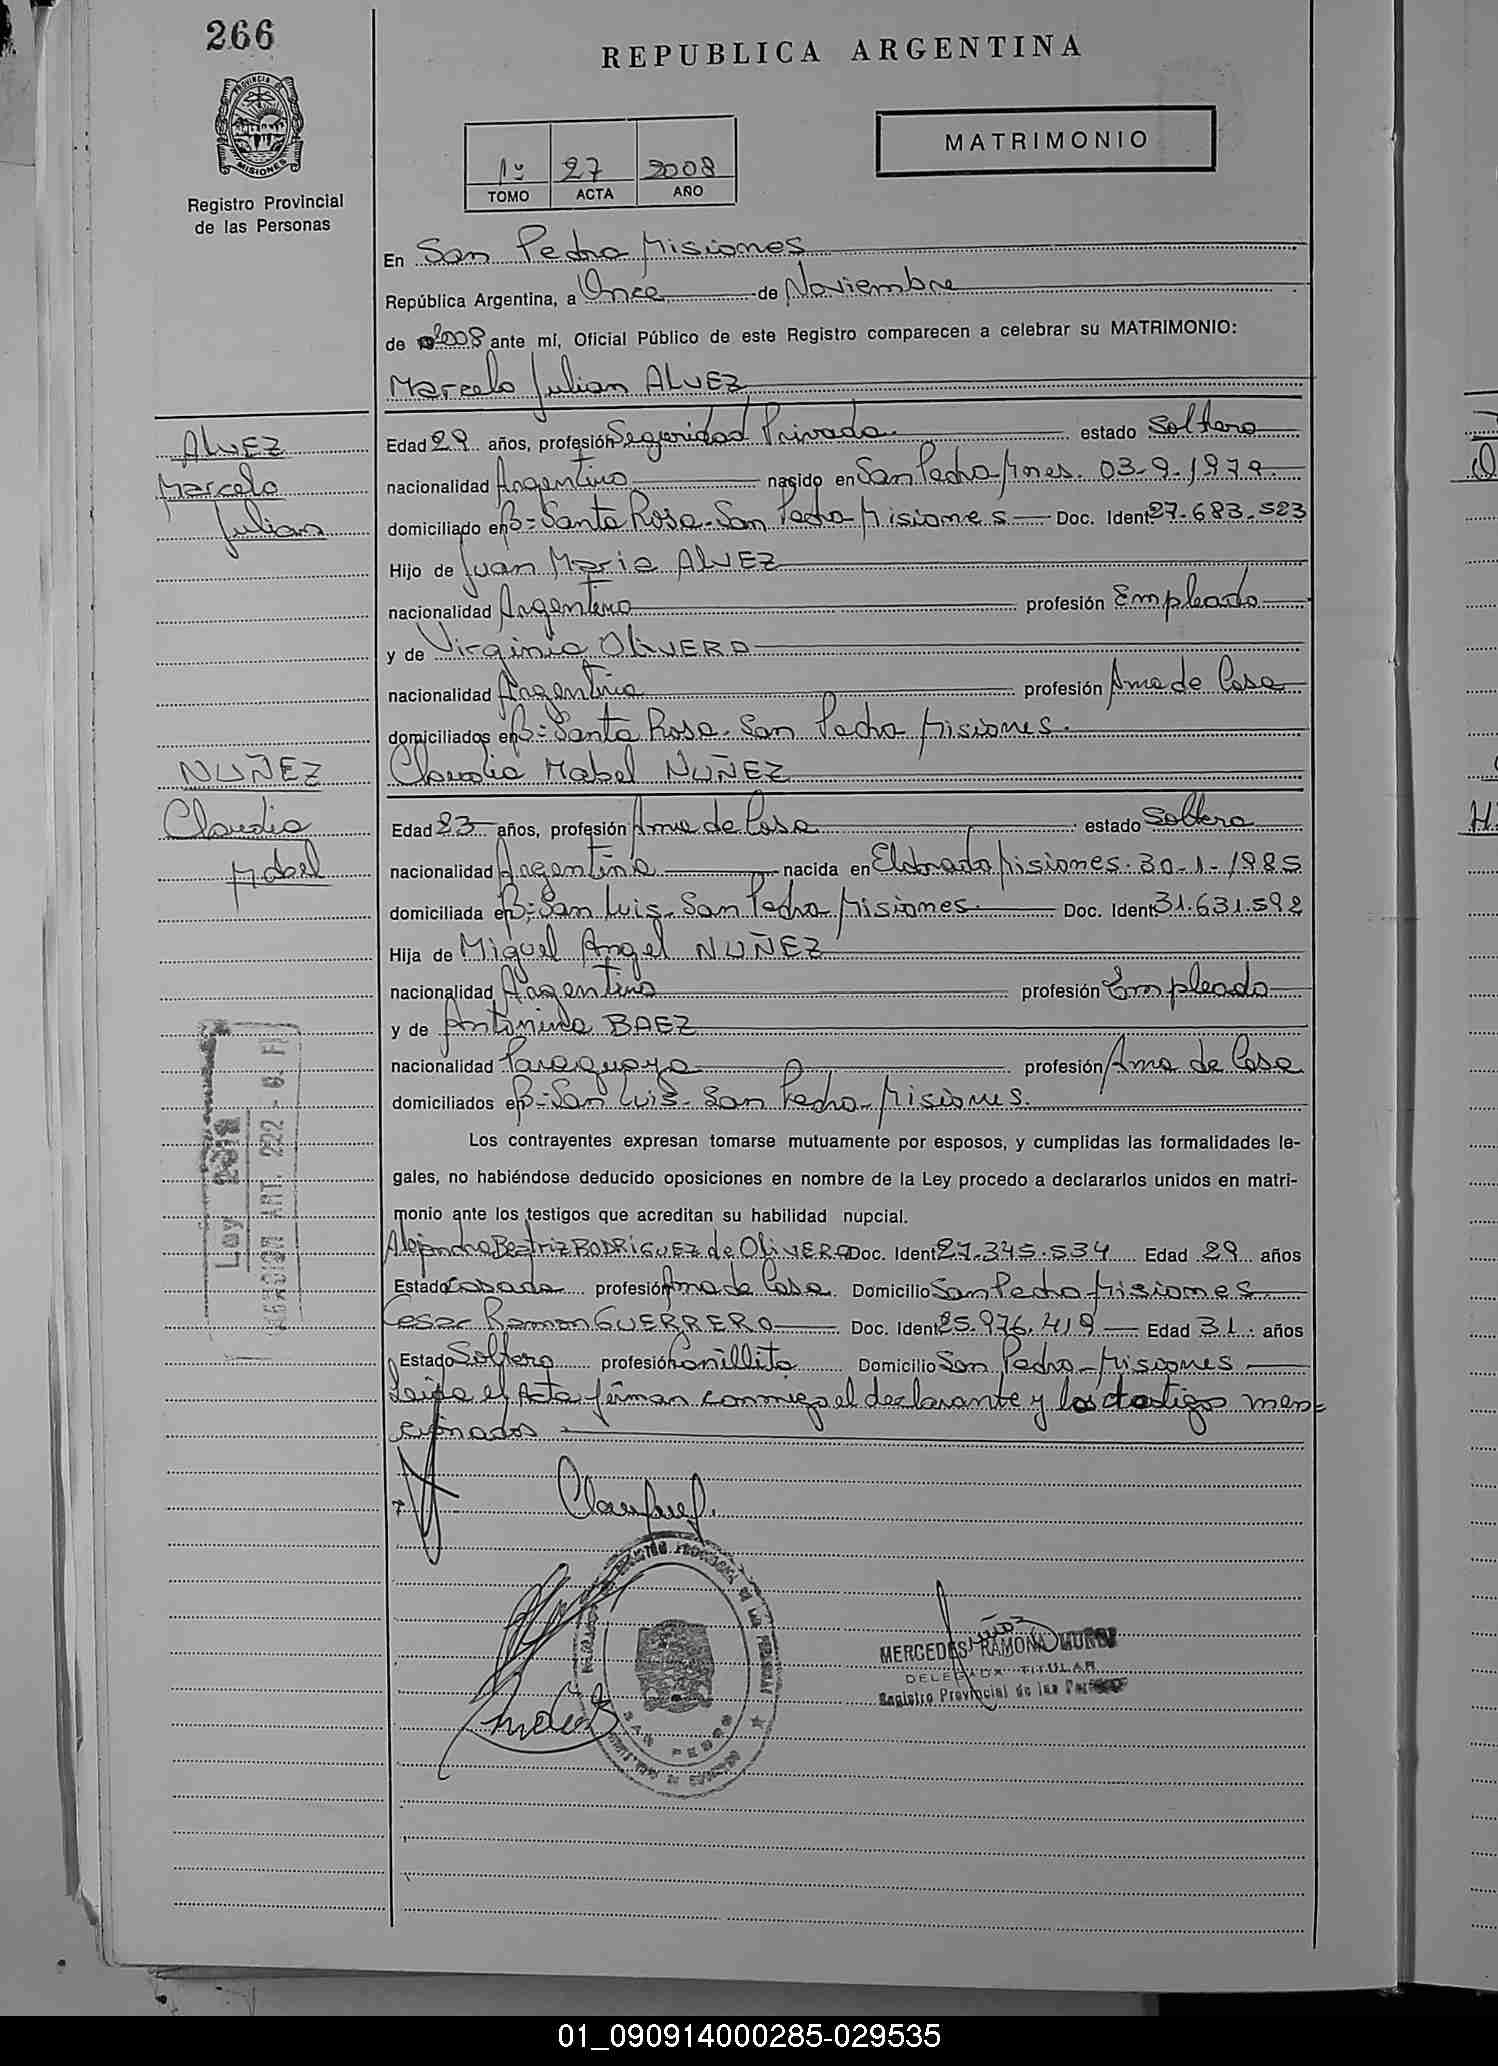 266
REPUBLICA ARGENTINA
PROVINCIA DE
MISIONES
Registro Provincial
de las Personas
MATRIMONIO
1º 27 2008
TOMO ACTA AÑO
En San Pedro Misiones
República Argentina, a Once de Noviembre
de 2008 ante mí, Oficial Público de este Registro comparecen a celebrar su MATRIMONIO:
Marcelo Julian ALVEZ
ALVEZ
Marcelo
Julian
Edad 29 años, profesión Seguridad Privada estado Soltero
nacionalidad Argentino nacido en San Pedro Mnes. 03-9-1979.
domiciliado en Bº Santa Rosa-San Pedro Misiones Doc. Ident. 27.683.523
Hijo de Juan Maria ALVEZ
nacionalidad Argentino profesión Empleado
y de Virginia OLIVERA
nacionalidad Argentina profesión Ama de Casa
domiciliados en Bº Santa Rosa. San Pedro Misiones.
NUÑEZ
Claudia
Mabel
Claudia Mabel NUÑEZ
Edad 23 años, profesión Ama de Casa estado Soltera
nacionalidad Argentina nacida en Eldorado Misiones. 30-1-1985
domiciliada en Bº San Luis. San Pedro Misiones. Doc. Ident. 31.631.592
Hija de Miguel Angel NUÑEZ
nacionalidad Argentino profesión Empleado
y de Antonina BAEZ
nacionalidad Paraguaya profesión Ama de Casa
domiciliados en Bº San Luis- San Pedro-Misiones.
Ley
ART. 222
Los contrayentes expresan tomarse mutuamente por esposos, y cumplidas las formalidades le-
gales, no habiéndose deducido oposiciones en nombre de la Ley procedo a declararlos unidos en matri-
monio ante los testigos que acreditan su habilidad nupcial.
Alejandra Beatriz RODRIGUEZ de OLIVERA Doc. Ident. 27.345.534 Edad 29 años
Estado Casada profesión Ama de Casa. Domicilio San Pedro Misiones
Cesar Ramon GUERRERO Doc. Ident. 25.976.419 Edad 31. años
Estado Soltero profesión Canillita Domicilio San Pedro-Misiones
Leida el Acta firman conmigo el declarante y los testigos men-
cionados
SAN PEDRO
MERCEDES RAMONA
DELEGADA TITULAR
Registro Provincial de las
01_090914000285-029535